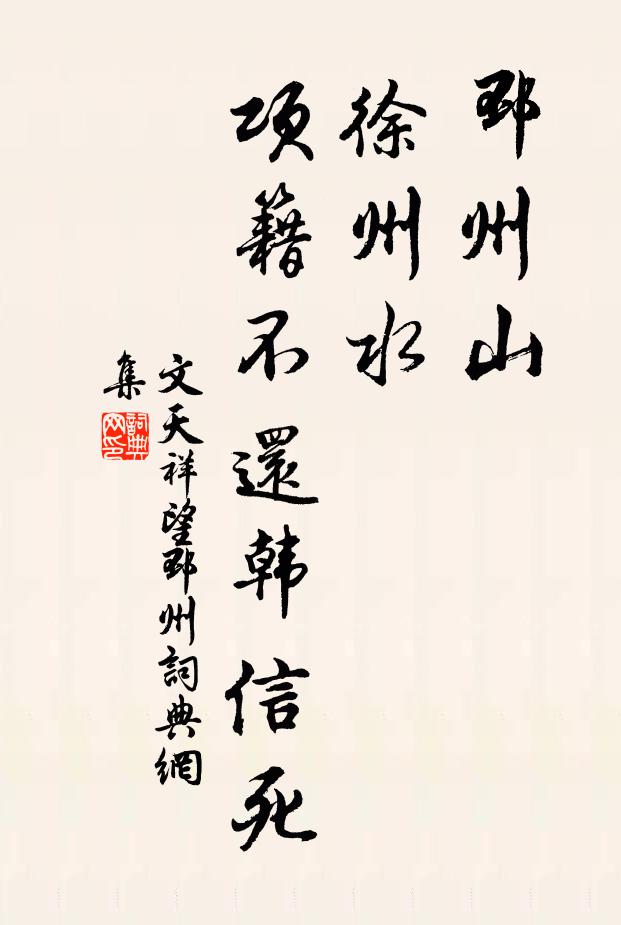 邳州山
徐州水
項籍不還韓信死
文天祥望邳州詞典網
集
詞典
网印